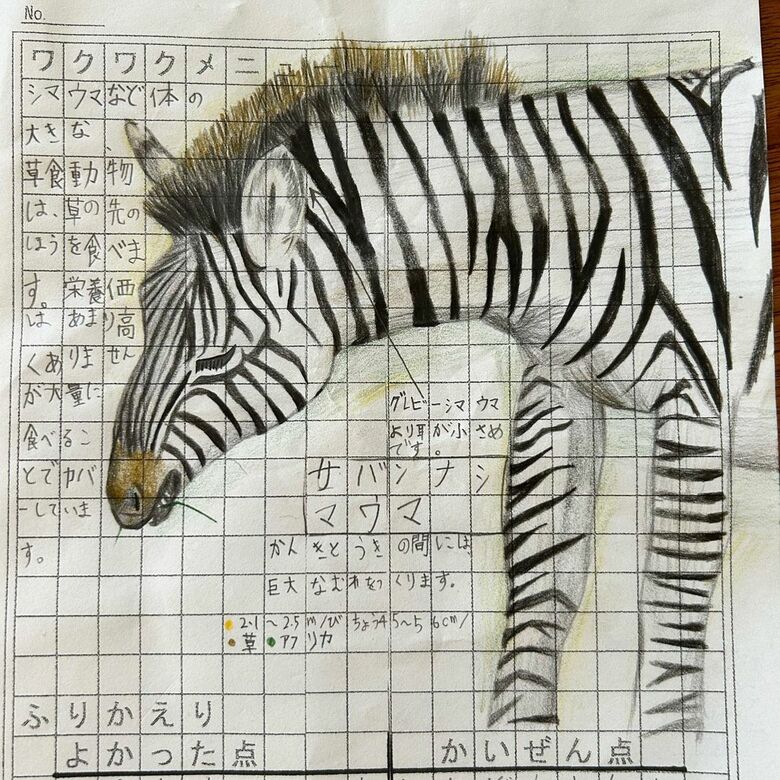 No.
ワクワクメニュー
シマウマなど体の
大きな、
草食動物
は、草の先の
ほうを食べま
す。栄養価
はあまり高
くありません
が大量に
食べるこ
とでカバ
ーしていま
す。
グレビーシマウマ
より耳が小さめ
です。
サバンナシ
マウマ
かんきとうきの間には
巨大なむれをつくります。
2.1～2.5m/びちょう45～56cm/
草 アフリカ
ふりかえり
よかった点 かいぜん点